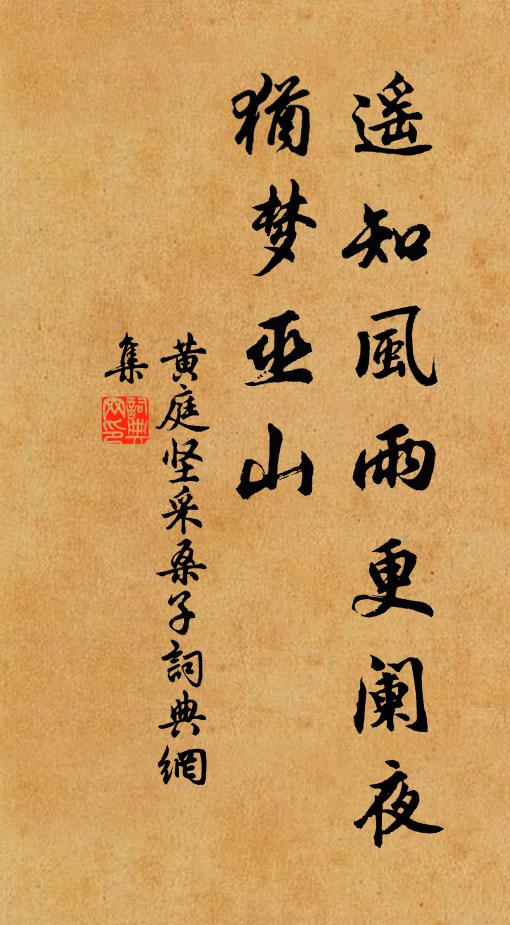 遥知風雨更阑夜
猶梦巫山
黄庭坚采桑子詞典網
集
詞典網印